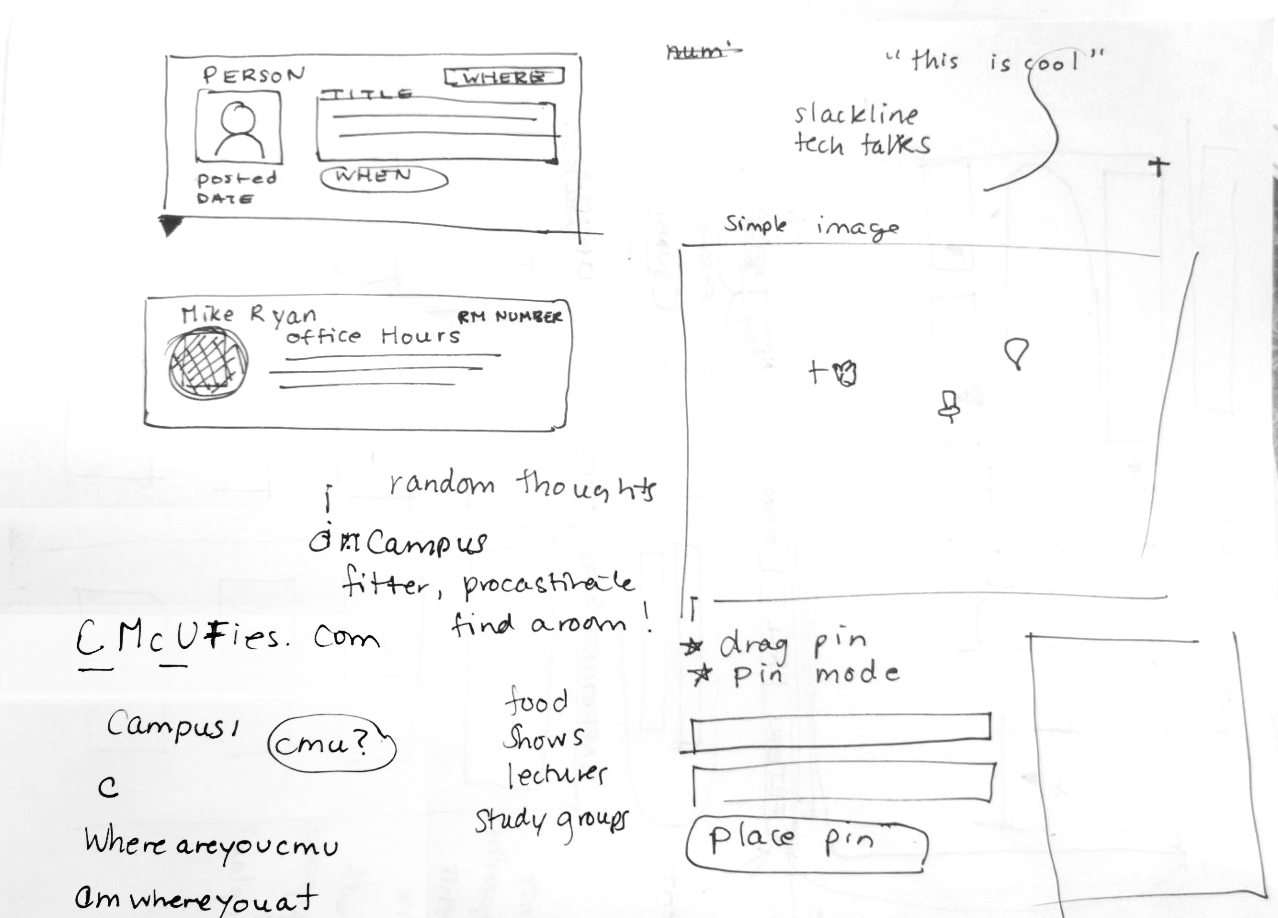 PERSON
WHERE
TITLE
posted
DATE
WHEN
Mike Ryan
RM NUMBER
office Hours
random thoughts
Campus
fitter, procastinate
find a room!
CMcUFies.com
Campus,
cmu?
C
Where areyoucmu
am whereyouat
food
Shows
lectures
Study groups
num
"this is cool"
slackline
tech talks
Simple image
drag pin
pin mode
place pin